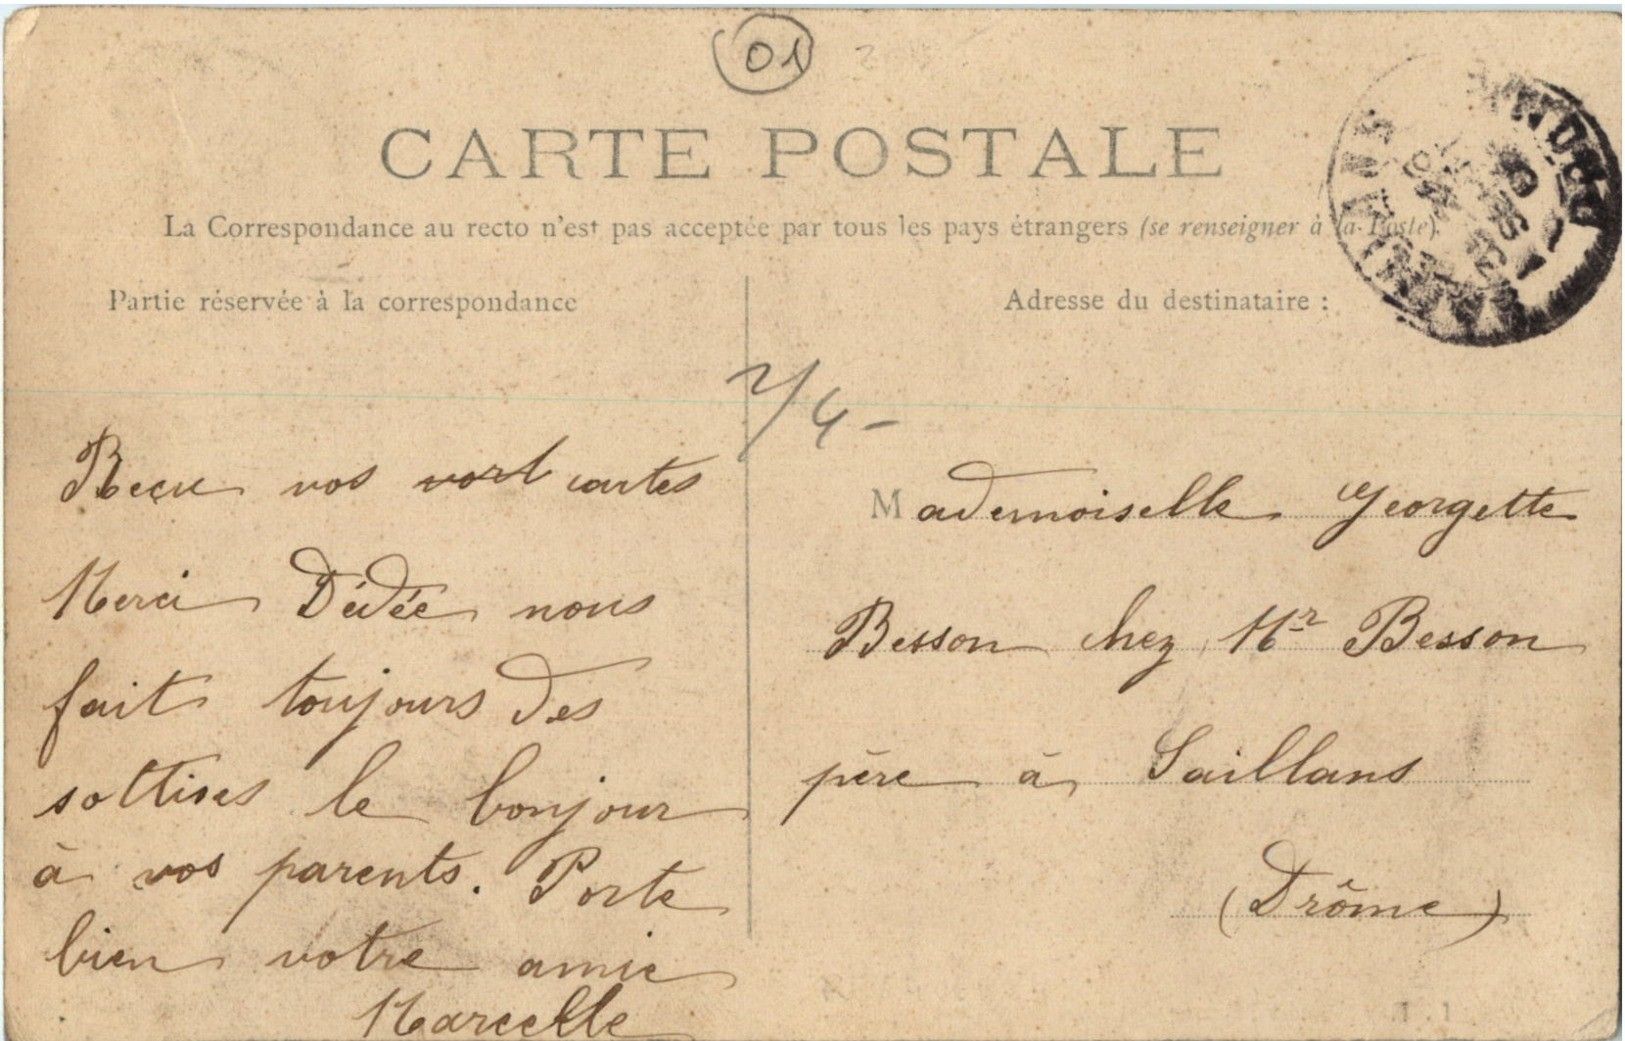 01
CARTE POSTALE
La Correspondance au recto n'est pas acceptée par tous les pays étrangers (se renseigner à la Poste).
Partie réservée à la correspondance
Reçu vos vort cartes
Merci Dédée nous
fait toujours des
sottises le bonjour
à vos parents. Porte
bien votre amie
Marcelle
2/4-
Adresse du destinataire :
Mademoiselle Georgette
Besson chez Mr Besson
père à Saillans
(Drôme)